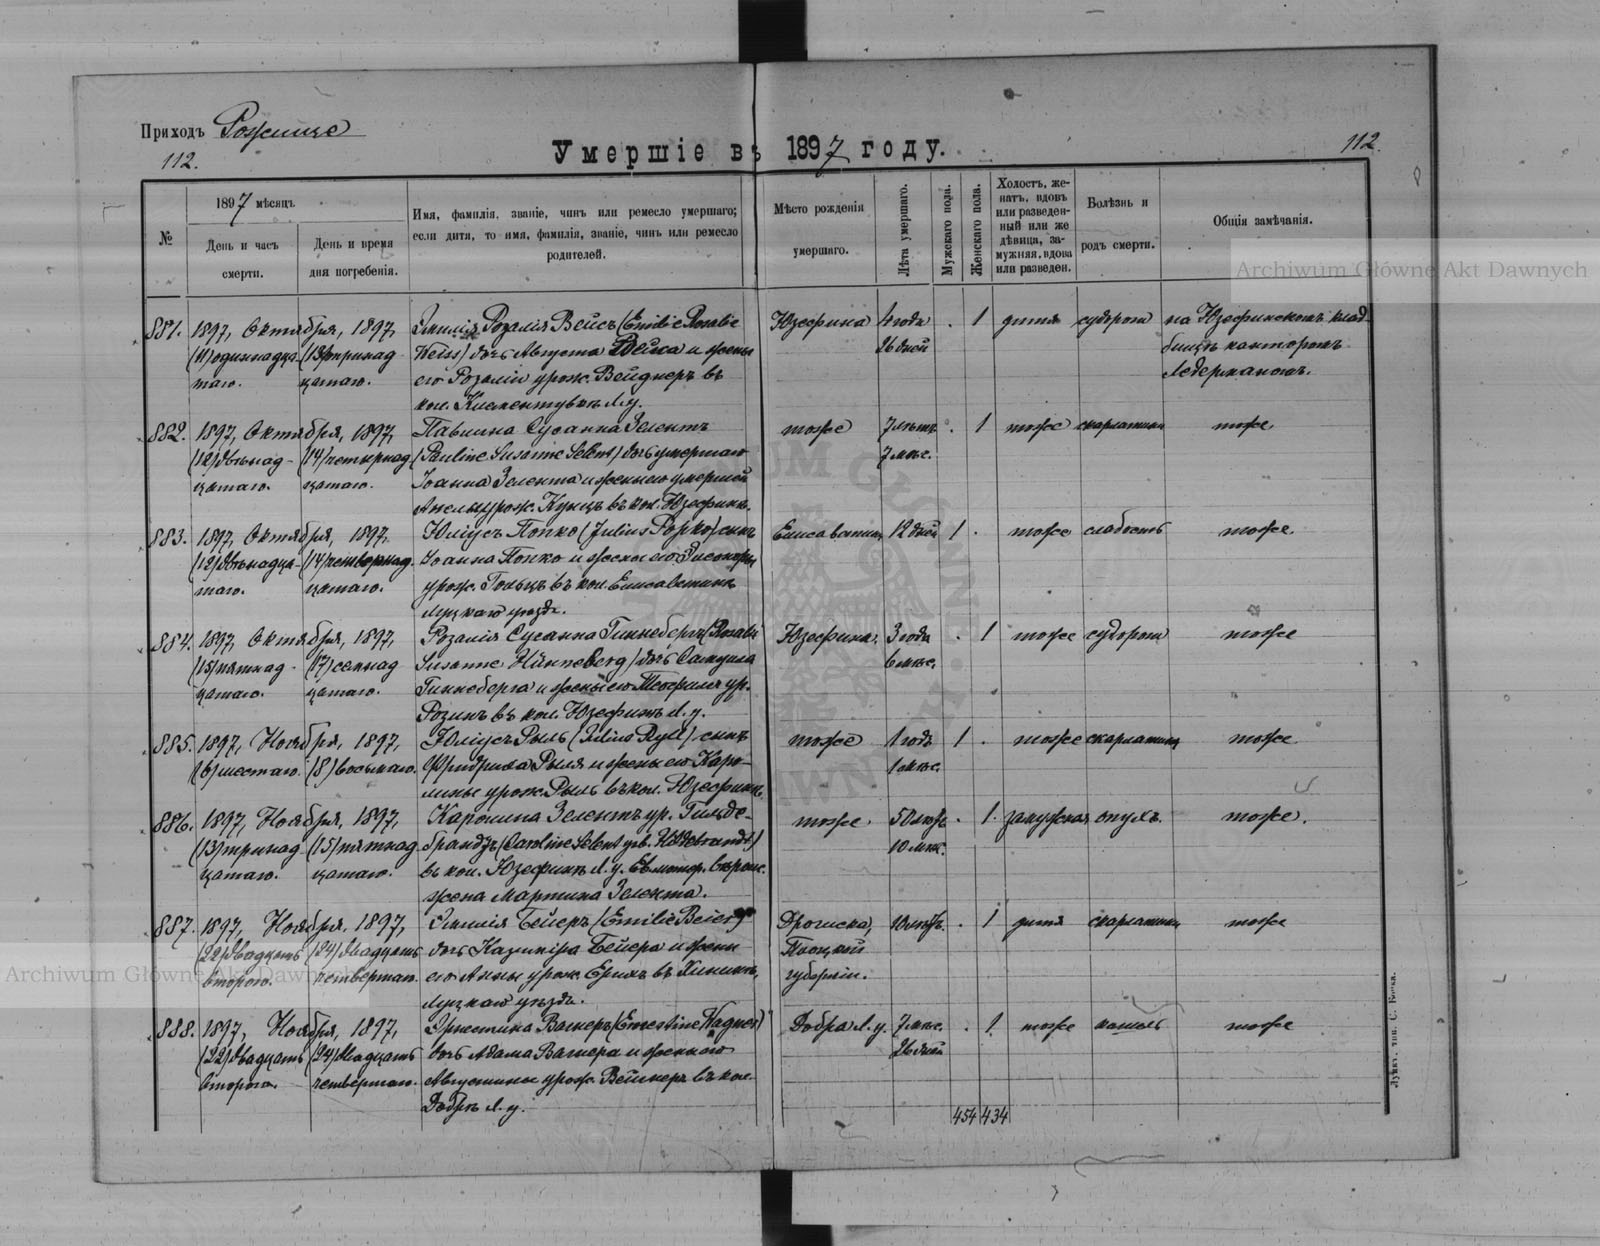 Приходъ Рожище
112.
112.
Умершіе въ 1897 году.
№
1897 мѣсяцъ
День и часъ смерти.
День и время дня погребенія.
Имя, фамилія, званіе, чинъ или ремесло умершаго;
если дитя, то имя, фамилія, званіе, чинъ или ремесло
родителей.
Мѣсто рожденія
умершаго.
Лѣта умершаго.
Мужскаго пола.
Женскаго пола.
Холостъ, же-
натъ, вдовъ
или разведен-
ный или же
дѣвица, за-
мужняя, вдова
или разведен.
Болѣзнь и
родъ смерти.
Общія замѣчанія.
Archiwum Główne Akt Dawnych
881. 1897, Октября, 1897, Эмилія Розалія Вейсъ (Emilie Rosalie Юзефина 4 года . 1 дитя судороги на Юзефинскомъ клад-
(11) одиннадца- (13) тринад Weiss) дочь Августа Вейса и жены 26 дней бищѣ канторомъ
таго. цатаго. его Розаліи урож. Вейднеръ въ
кол. Климентувкѣ Л. у.
882. 1897, Октября, 1897, Павлина Сусанна Зелентъ тоже 7 лѣтъ . 1 тоже скарлатина тоже
(12) двѣнад- (14) четырнад (Pauline Susanne Selent) дочь умершаго 7 мѣс.
цатаго. цатаго. Іоанна Зелента и жены его умершей
урож. Кунцъ въ кол. Юзефинѣ.
883. 1897, Октября, 1897, Юліусъ Попко (Julius Popko) сынъ 12 дней 1 . тоже слабость тоже
(12) двѣнадца- (14) четырнад. Іоанна Попко и жены его Элеоноры
таго. цатаго. урож. Гольцъ въ кол. Елисаветинѣ
Луцкаго уѣзда.
884. 1897, Октября, 1897, Розалія Сусанна Гиннебергъ (Rosalie Юзефина. 3 года . 1 тоже судороги тоже
(15) пятнад- (17) семнад Susanne Hünneberg) дочь Самуила 6 мѣс.
цатаго. цатаго. Гиннеберга и жены его ур.
въ кол. Юзефинѣ Л. у.
885. 1897, Ноября, 1897, Юліусъ Рыль (Julius Ryll) сынъ тоже 1 годъ 1 . тоже скарлатина тоже
(6) шестаго. (8) восьмаго. Фридриха Рыля и жены его Каро-
лины урож. Рыль въ кол. Юзефинѣ.
886. 1897, Ноября, 1897, Каролина Зелентъ ур. Гильде- тоже 50 лѣтъ . 1. замужняя опухъ. тоже.
(13) тринад (15) пятнад брандтъ (Caroline Selent geb. Hildebrandt) 10 мѣс.
цатаго. цатаго. въ кол. Юзефинѣ Л. у.
жена Мартина Зелента.
887. 1897, Ноября, 1897, Эмилія Бейеръ (Emilie Beier) 10 лѣтъ. . 1 дитя скарлатина тоже
(22) двадцать (24) двадцать дочь Казиміра Бейера и жены Плоцкой
втораго. четвертаго. его Анны урож. губерніи.
Луцкаго уѣзда.
888. 1897, Ноября, 1897, Эрнестина Вагнеръ (Ernestine Wagner) Добра Л. у. 7 мѣс. . 1. тоже кашель тоже
(22) двадцать (24) двадцать дочь Адама Вагнера и жены его 26 дней
втораго. четвертаго. Августины урож. въ кол.
Добрѣ Л. у.
454 434
Archiwum Główne Akt Dawnych